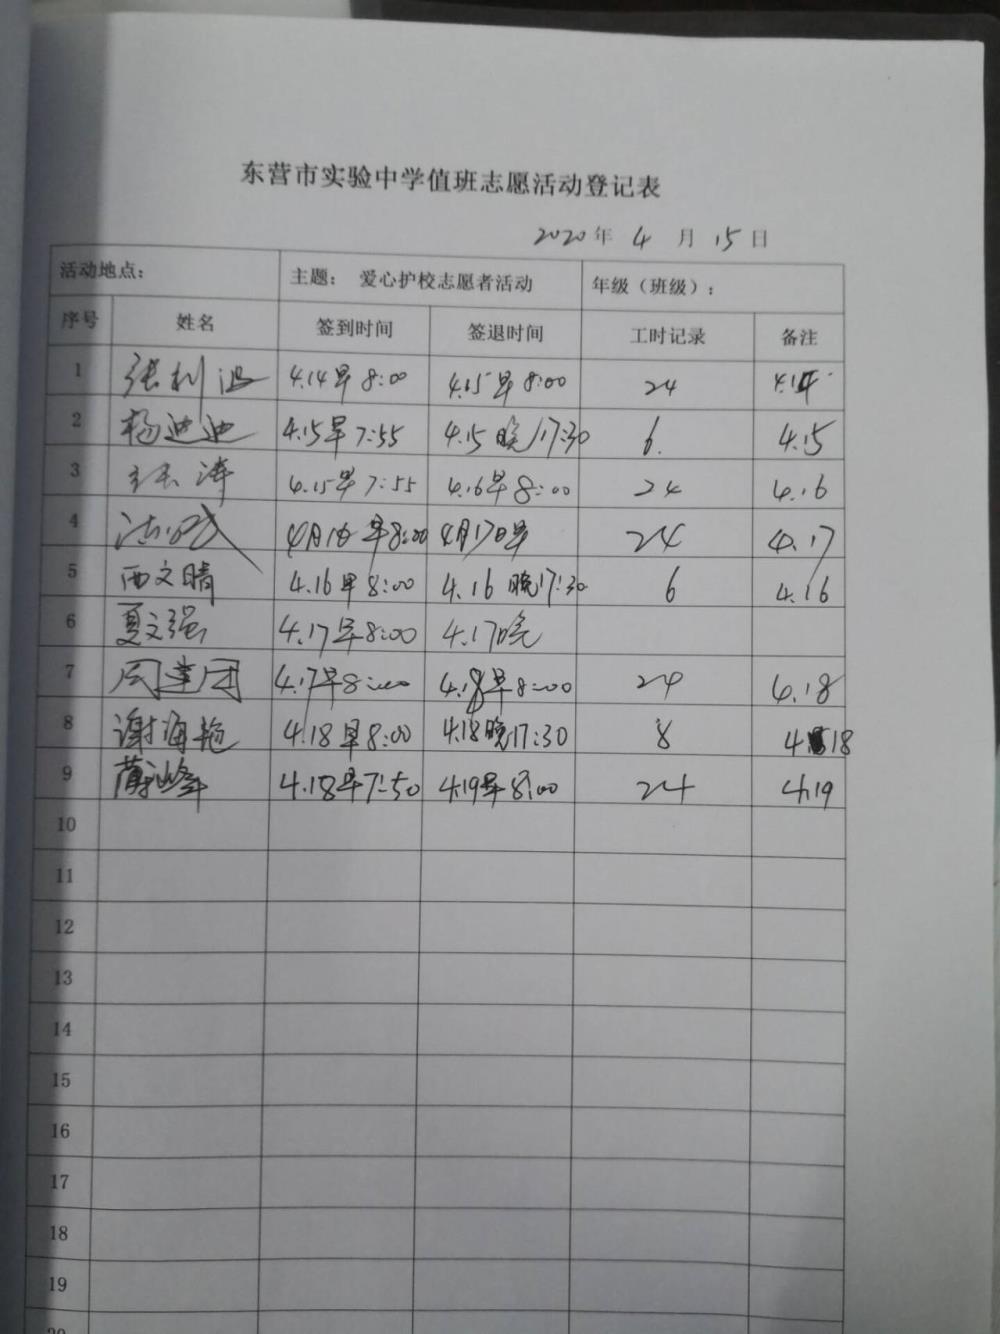 东营市实验中学值班志愿活动登记表
2020年 4 月 15 日
活动地点： 主题： 爱心护校志愿者活动 年级（班级）：
序号 姓名 签到时间 签退时间 工时记录 备注
1 张利波 4.14早8:00 4.15早8:00 24 4.14
2 杨迪迪 4.15早7:55 4.15晚17:30 6. 4.15
3 4.15早7:55 4.16早8:00 24 4.16
4 4月16早8:00 4月17日早 24 4.17
5 西文晴 4.16早8:00 4.16晚17:30 6 4.16
6 夏文强 4.17早8:00 4.17晚
7 周建团 4.17早8:00 4.18早8:00 24 4.18
8 谢海艳 4.18早8:00 4.18晚17:30 8 4.18
9 4.18早7:50 4.19早8:00 24 4.19
10
11
12
13
14
15
16
17
18
19